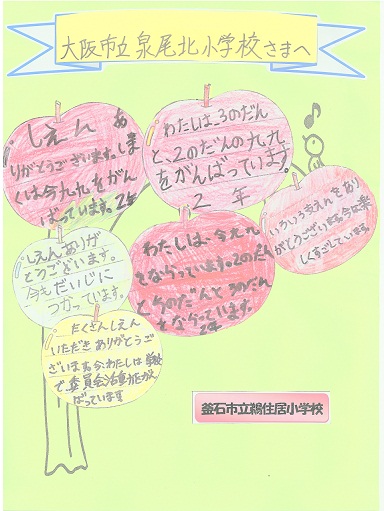 大阪市立泉尾北小学校さまへ
しえん あ
りがとうございます。ぼ
くは今九九をがん
ばっています。2年
わたしは、3のだん
と、2のだんの九九
をがんばっています。
2年
いろいろ支えんをあり
がとうございます。今は楽
しくすごしています
しえんありが
とうございます。
今もだいじに
つかっています。
わたしは、今九九
をならっています。2のだん
と5のだんと3のだん
をならっています。
2年
たくさんしえん
いただきありがとうご
ざいます。今、わたしは学校
で委員会活動をがん
ばっています
釜石市立鵜住居小学校